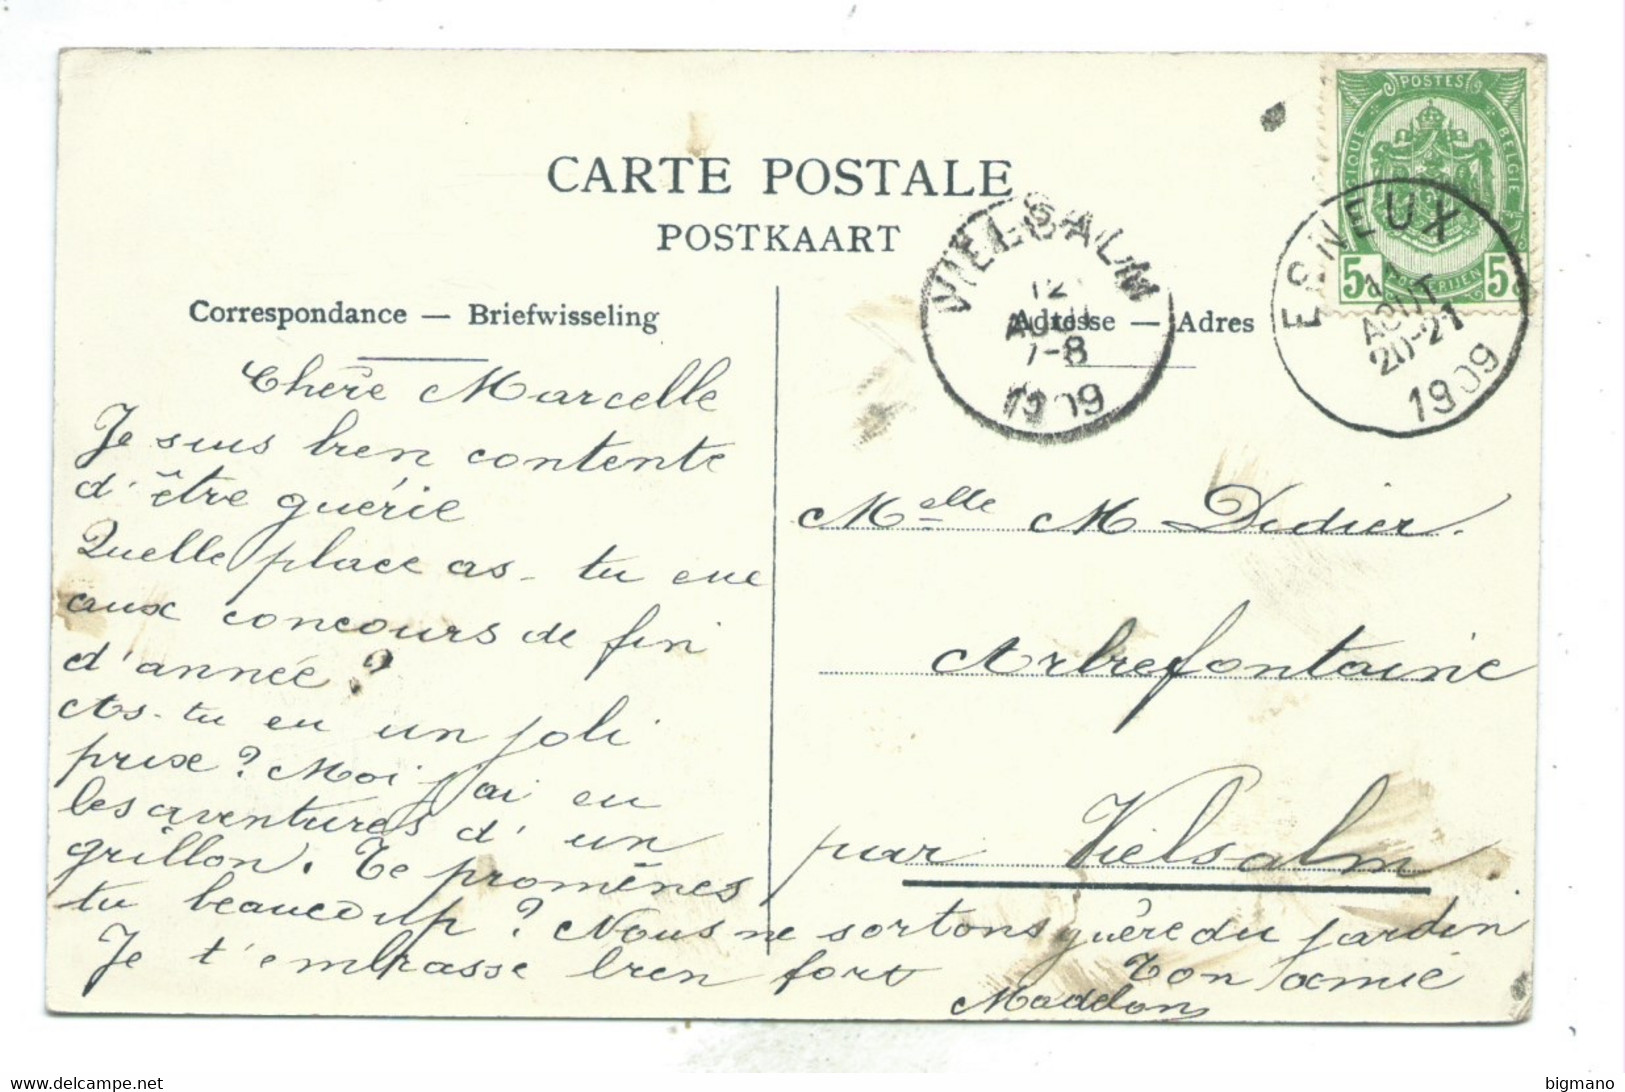 CARTE POSTALE
POSTKAART
Correspondance — Briefwisseling
Adresse — Adres
POSTES
BELGIQUE
BELGIË
POSTERIJEN
5 5
ESNEUX
AOUT
20-21
1909
VIELSALM
12
AOUT
7-8
1909
Chère Marcelle
Je suis bien contente
d'être guérie
Quelle place as-tu eue
aux concours de fin
d'année?
As-tu eu un joli
prix? Moi j'ai eu
les aventures d'un
grillon. Te promènes
tu beaucoup? Nous ne sortons guère du jardin
Je t'embrasse bien fort Ton amie
Madelon
Melle M Didier.
Arbrefontaine
par Vielsalm
bigmano